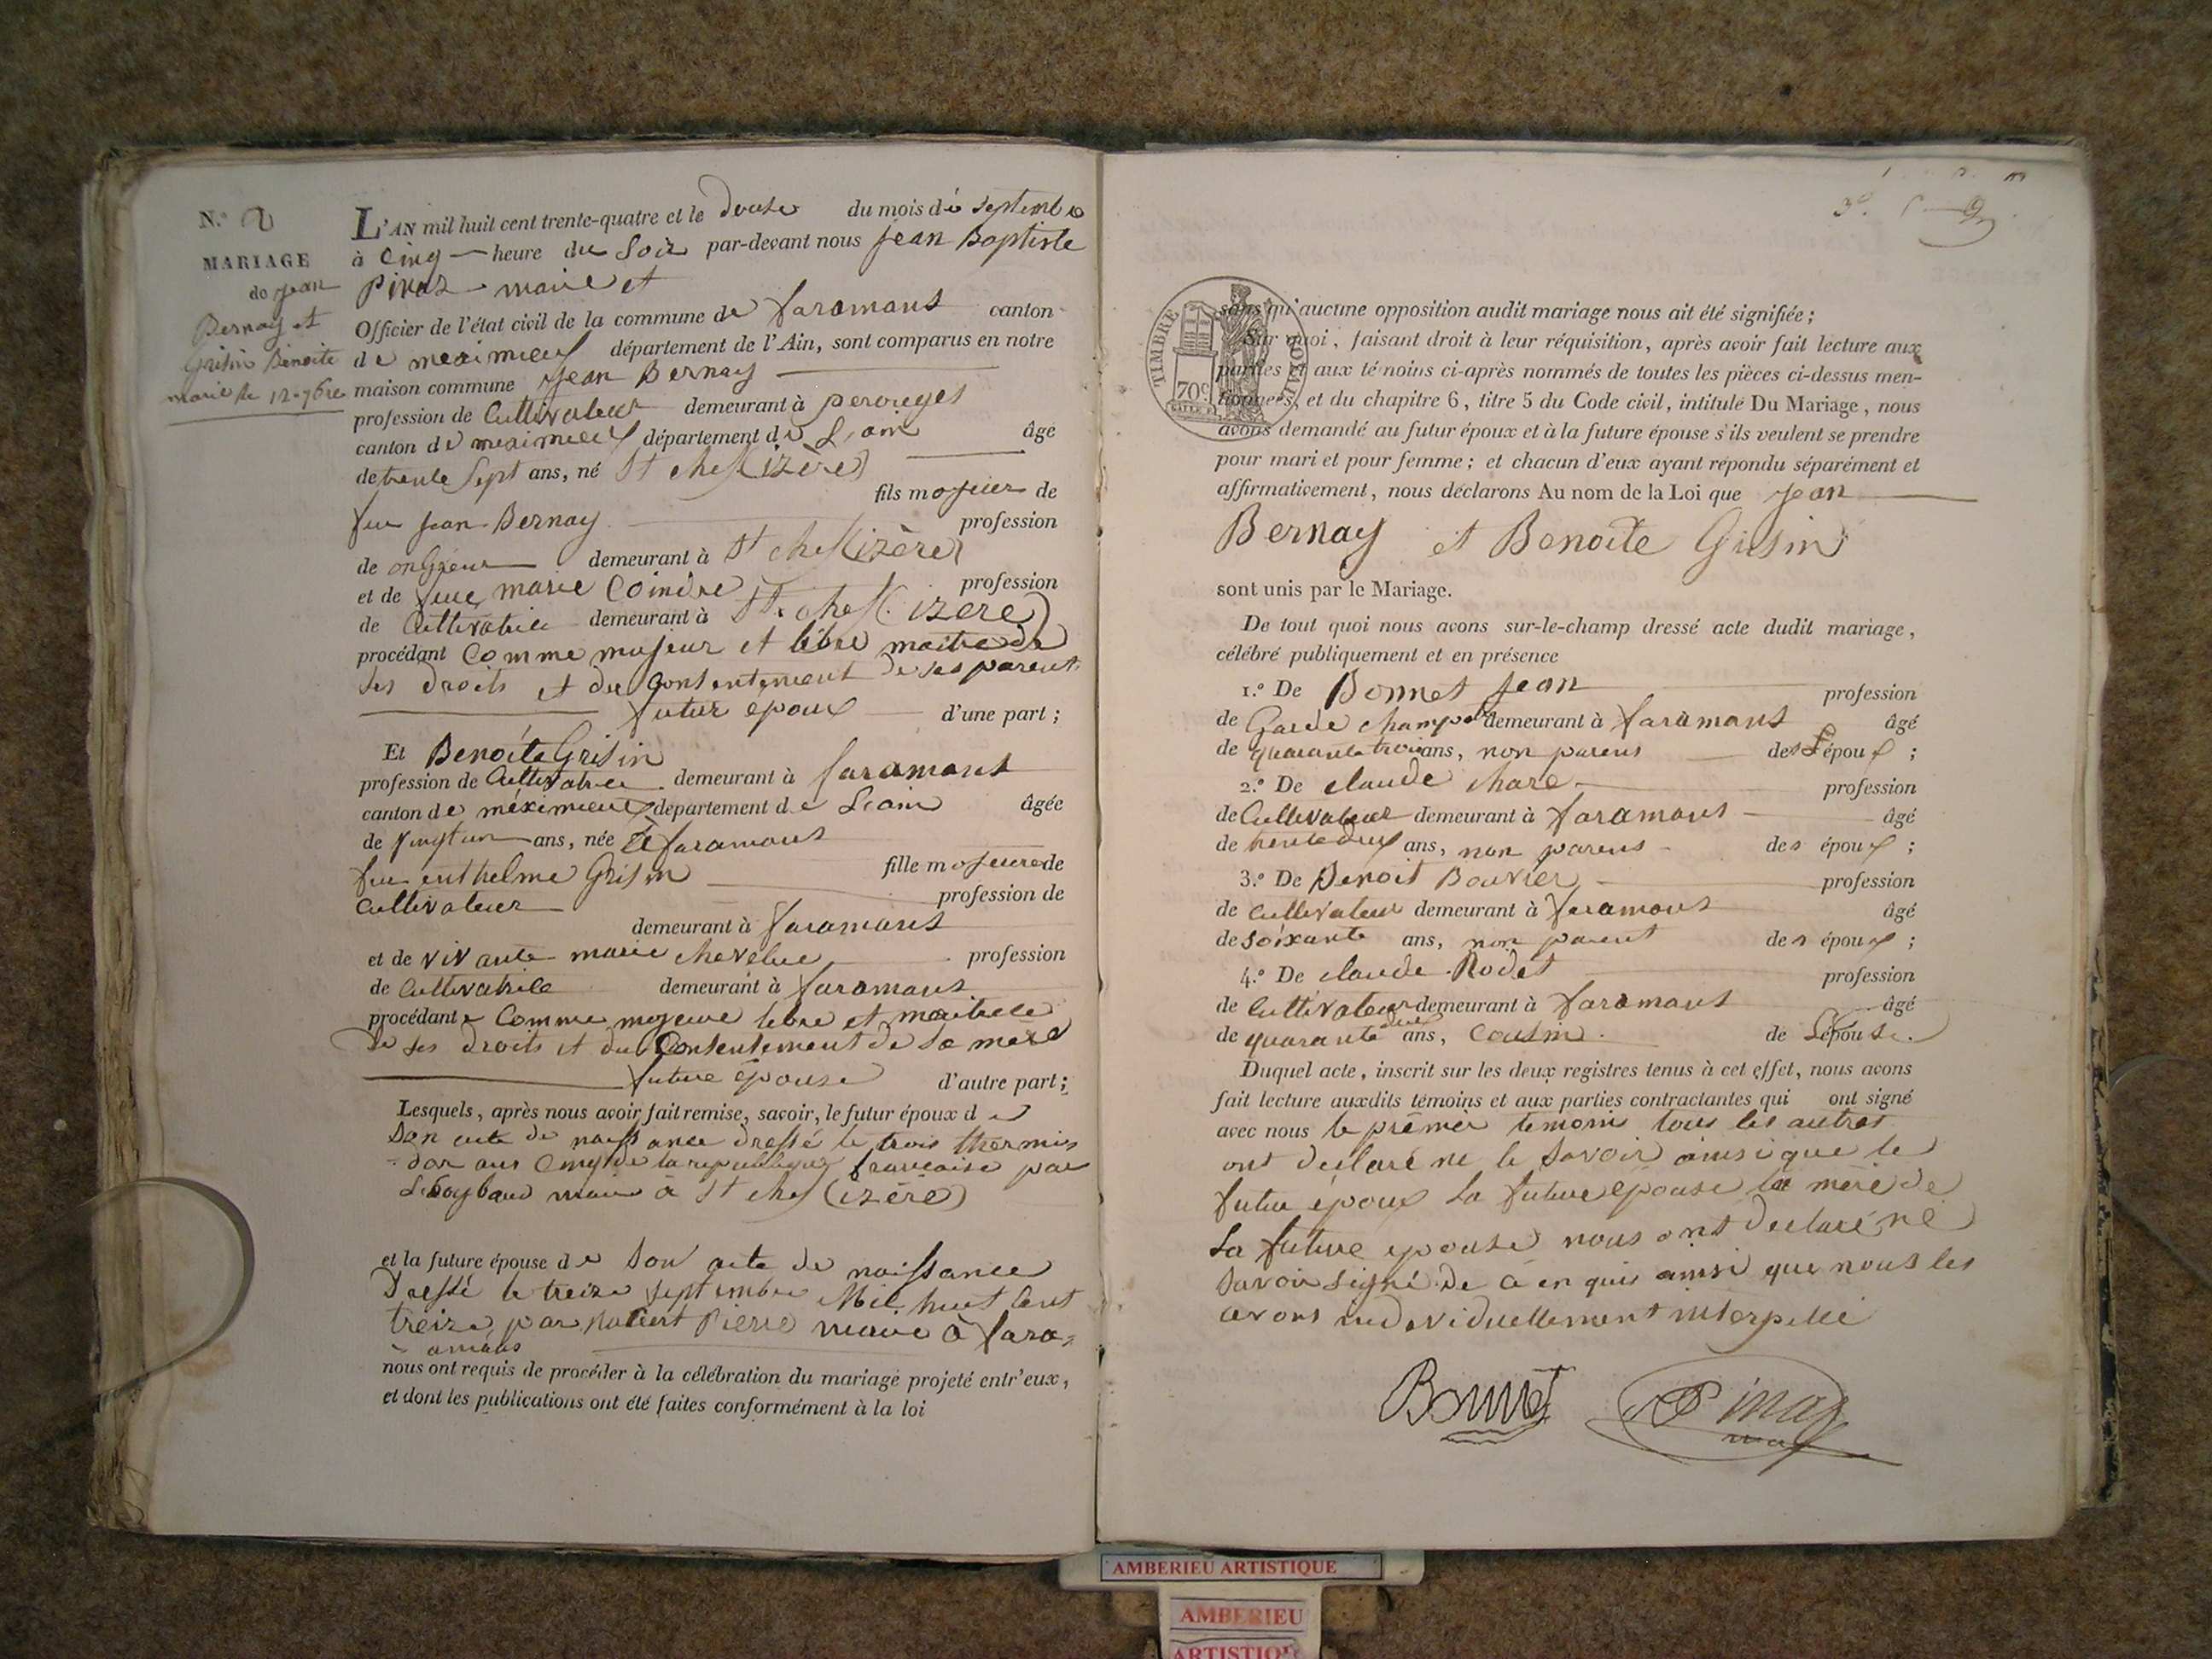 N.o 2
MARIAGE
de Jean
Bernay et
Grisin Benoite
marié le 12 7bre
L'AN mil huit cent trente-quatre et le douse du mois de septembre
à cinq heure du soir par-devant nous Jean Baptiste
Pinaz maire et
Officier de l'état civil de la commune de faramans canton
de meximieux département de l'Ain, sont comparus en notre
maison commune Jean Bernay
profession de Cultivateur demeurant à perouges
canton de meximieux département de L'ain âge
de trente sept ans, né St chef (izère)
fils majeur de
feu Jean Bernay profession
de demeurant à St chef (izère)
et de feue marie Coindre profession
de Cultivatrice demeurant à St. chef (izere)
procédant comme majeur et libre maitre de
ses droits et du consentement de ses parents
futur epoux d'une part ;
Et Benoite Grisin
profession de Cultivatrice demeurant à faramans
canton de méximieux département de L'ain âgée
de vingt un ans, née à faramans
fille majeure de
feu enthelme Grisin
profession de
Cultivateur
demeurant à faramans
et de vivante marie chevelue profession
de Cultivatrice demeurant à faramans
procédante comme mejeure libre et maitrece
de ses droits et du Consentement de sa mère
future épouse d'autre part ;
Lesquels, après nous avoir fait remise, savoir, le futur époux de
son acte de naissance dressé le trois thermi-
dor ans cinq de la republique francaise par
maire à St chef (izère)
et la future épouse de son acte de naissance
Dressé le treize septembre Mil huit cent
treize par Pierre maire à fara-
amans
nous ont requis de procéder à la célébration du mariage projeté entr'eux,
et dont les publications ont été faites conformément à la loi
TIMBRE ROYAL
70c.
sans qu'aucune opposition audit mariage nous ait été signifiée ;
Sur quoi, faisant droit à leur réquisition, après avoir fait lecture aux
parties et aux témoins ci-après nommés de toutes les pièces ci-dessus men-
tionnées, et du chapitre 6, titre 5 du Code civil, intitulé Du Mariage, nous
avons demandé au futur époux et à la future épouse s'ils veulent se prendre
pour mari et pour femme ; et chacun d'eux ayant répondu séparément et
affirmativement, nous déclarons Au nom de la Loi que Jean
Bernay et Benoite Grisin
sont unis par le Mariage.
De tout quoi nous avons sur-le-champ dressé acte dudit mariage,
célébré publiquement et en présence
1.o De Bonnet Jean profession
de Garde champetre demeurant à faramans âgé
de quarante trois ans, non parens des époux ;
2.o De claude chare profession
de Cultivateur demeurant à faramans âgé
de trente deux ans, non parens des époux ;
3.o De Benoit Bouvier profession
de Cultivateur demeurant à faramans âgé
de soixante ans, non parent des époux ;
4.o De claude Rodet profession
de Cultivateur demeurant à faramans âgé
de quarante deux ans, cousin de L'épouse.
Duquel acte, inscrit sur les deux registres tenus à cet effet, nous avons
fait lecture auxdits témoins et aux parties contractantes qui ont signé
avec nous le prémier temoins tous les autres
ont declaré ne le savoir ainsi que le
futur époux la future epouse la mère de
la future epouse nous ont declaré ne
savoir signé de ce en quis ainsi que nous les
avons individuellement interpellé
Bonnet Pinaz
AMBERIEU ARTISTIQUE
AMBERIEU
ARTISTIQUE